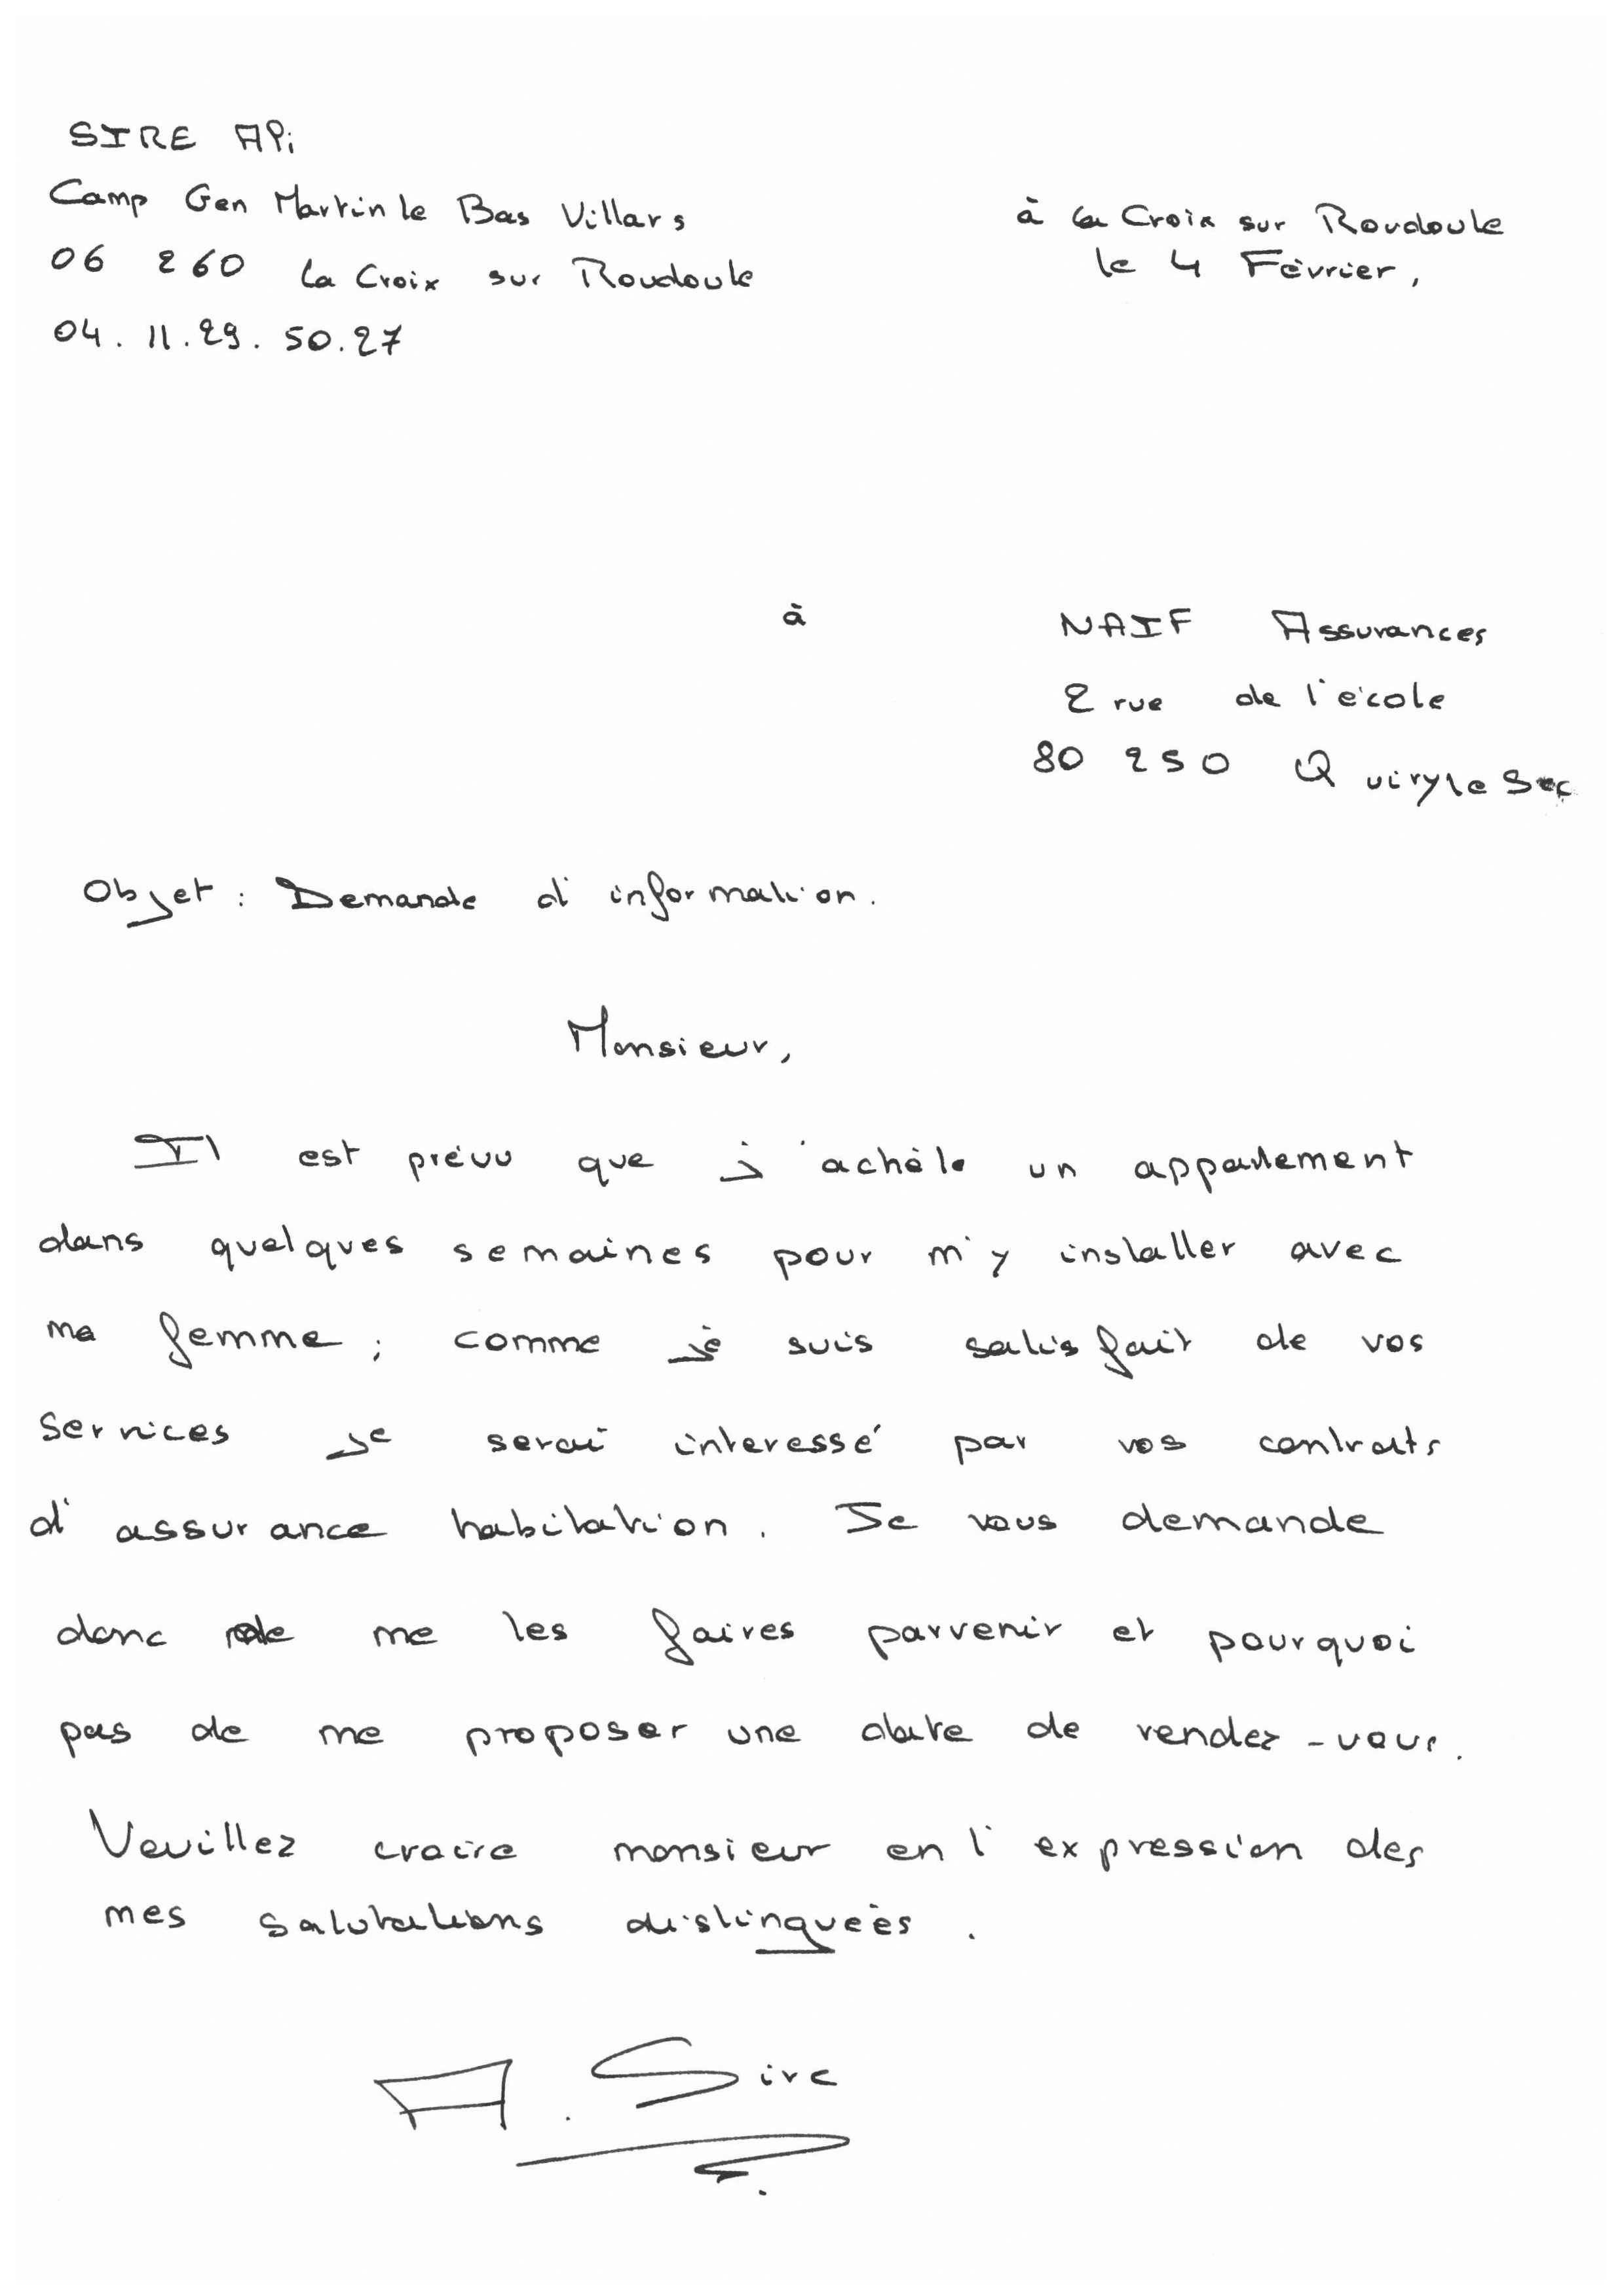 SIRE APi
Camp Gen Martin le Bas Villars
06 260 la Croix sur Roudoule
04.11.29.50.27
à la Croix sur Roudoule
le 4 Février,
à
NAIF Assurances
2 rue de l'école
80 250 Quiry le Sec
Objet : Demande d'information.
Monsieur,
Il est prévu que j'achète un appartement
dans quelques semaines pour m'y installer avec
ma femme ; comme je suis satisfait de vos
services je serai interessé par vos contrats
d'assurance habitation. Je vous demande
donc de me les faires parvenir et pourquoi
pas de me proposer une date de rendez-vous.
Veuillez croire monsieur en l'expression des
mes salutations distinguées.
A. Sire